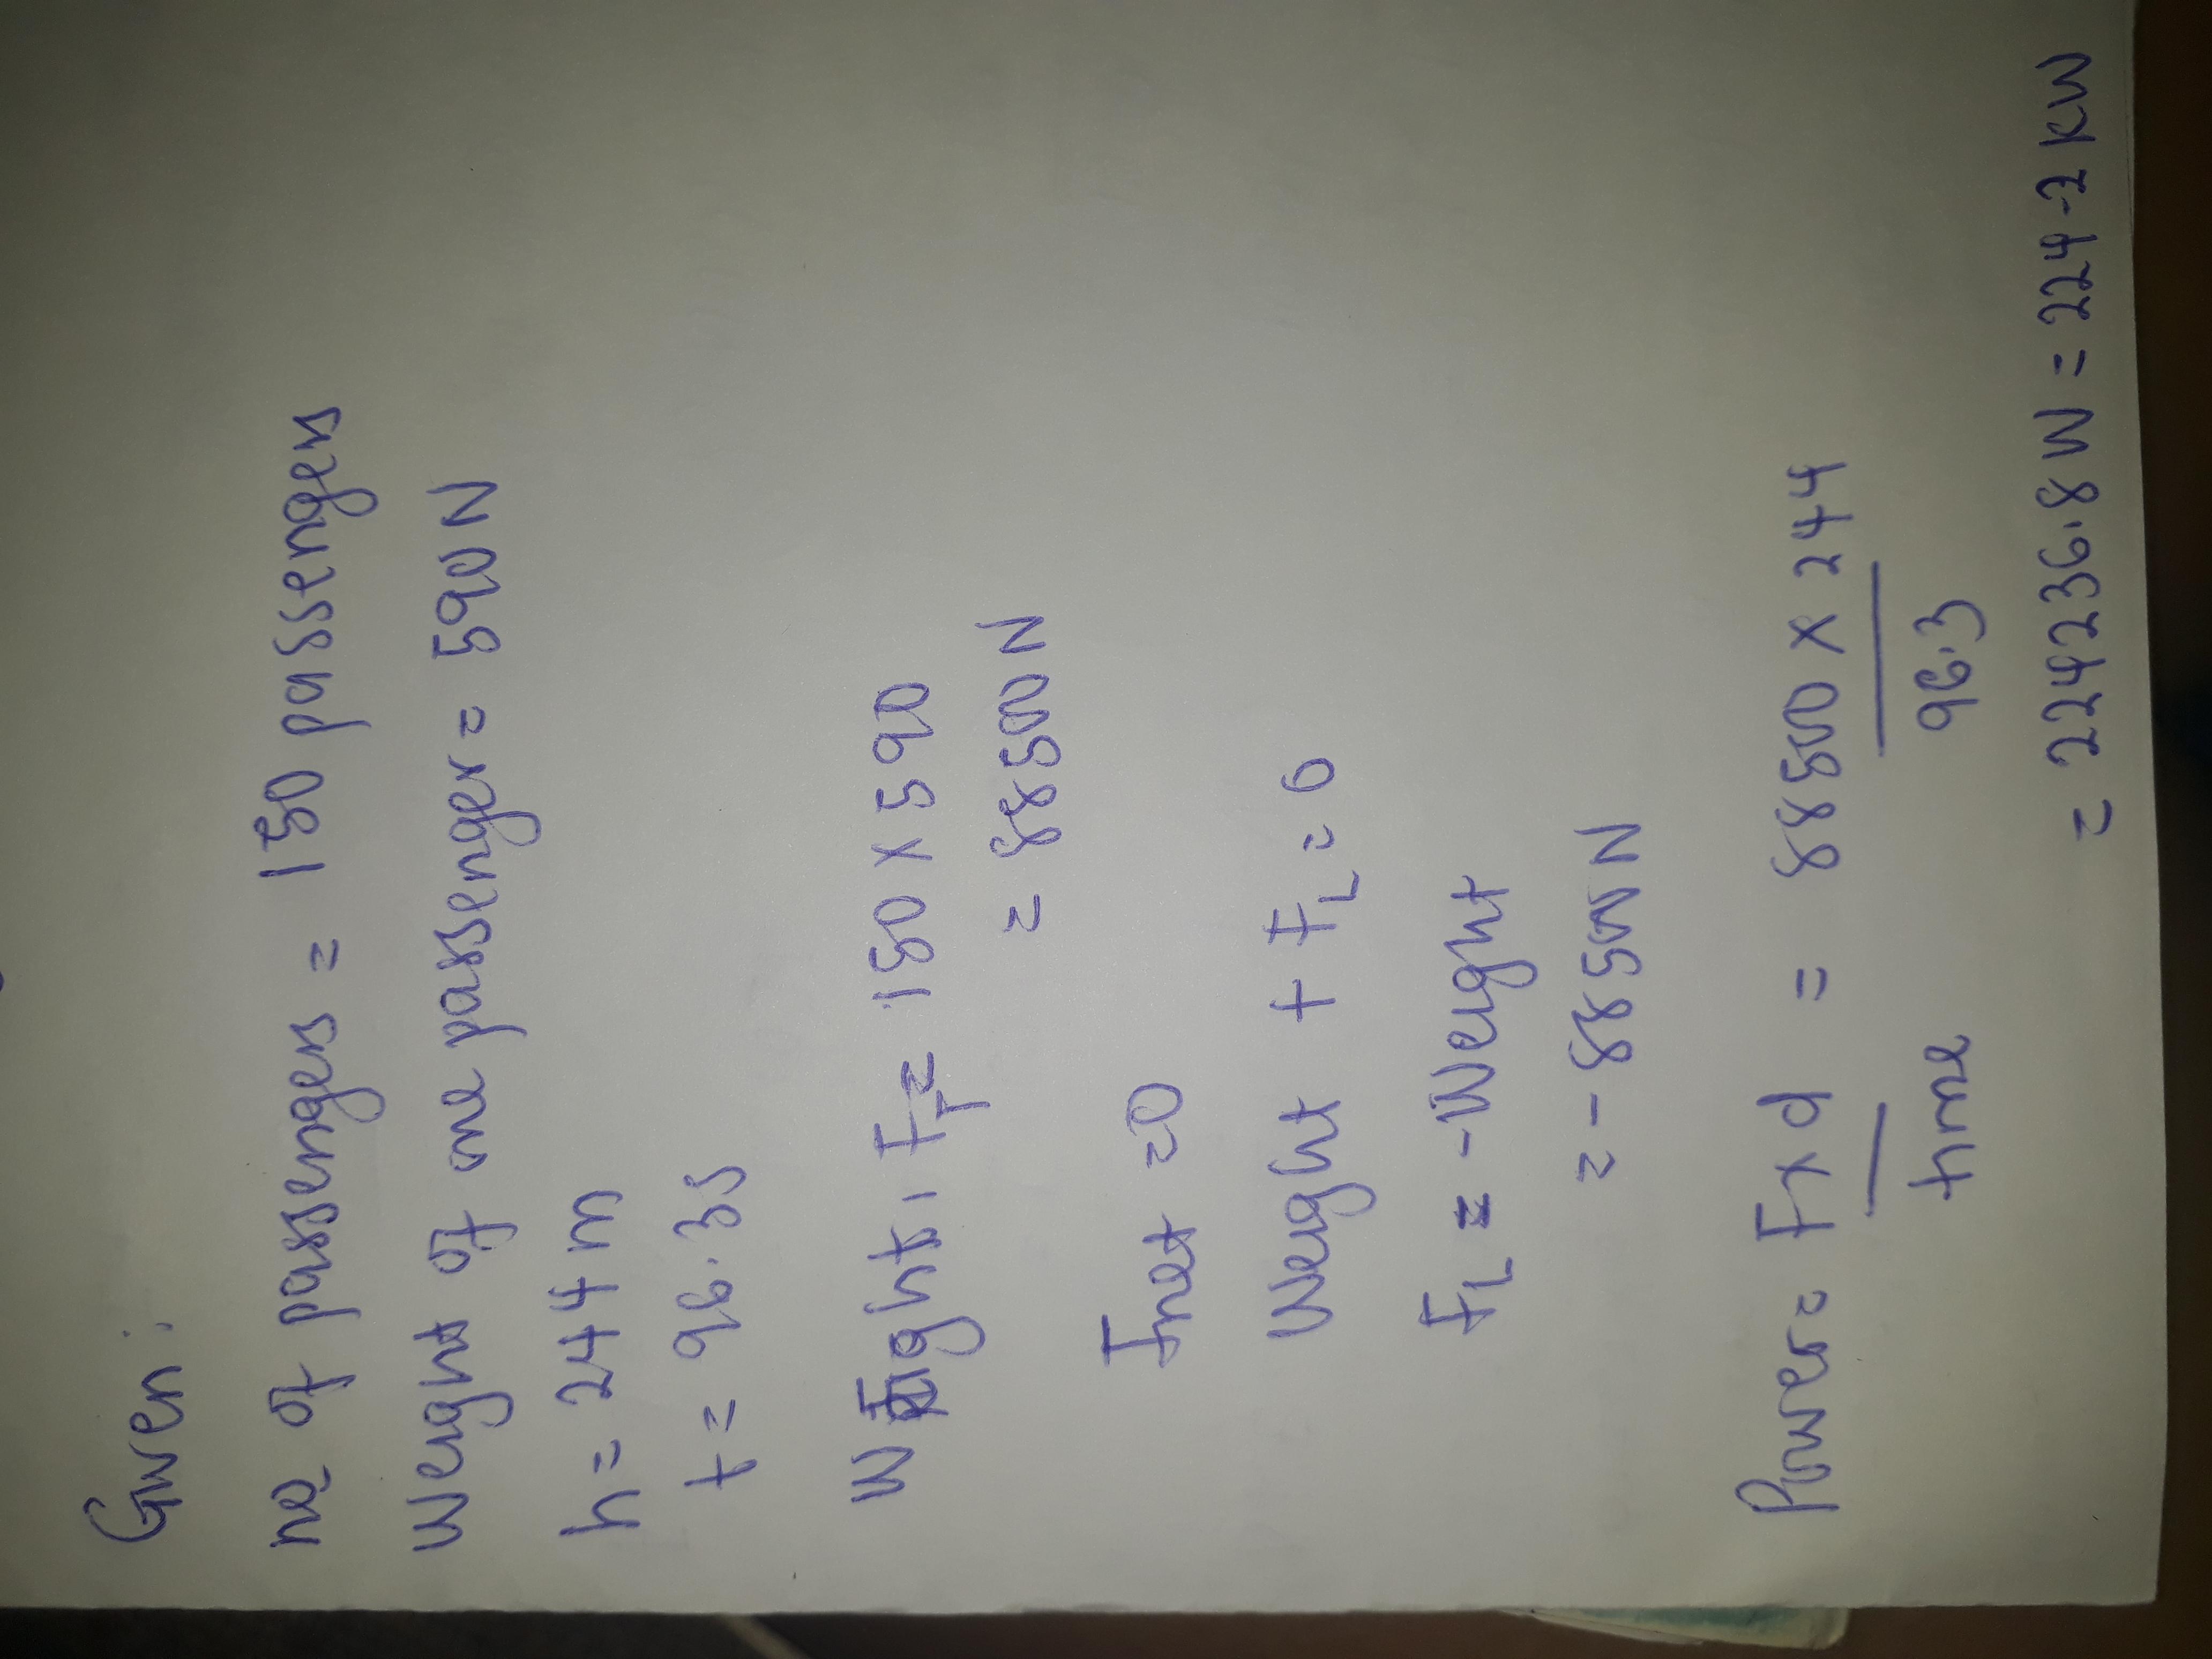 Given:
no of passengers = 150 passengers
Weight of one passenger = 590N
h = 244 m
t = 96.3s
Weight, FT = 150 x 590
= 88500N
Fnet = 0
Weight + FL = 0
FL = -Weight
= - 88500N
Power = Fxd = 88500 x 244
time 96.3
= 224236.8 W = 224.2 KW